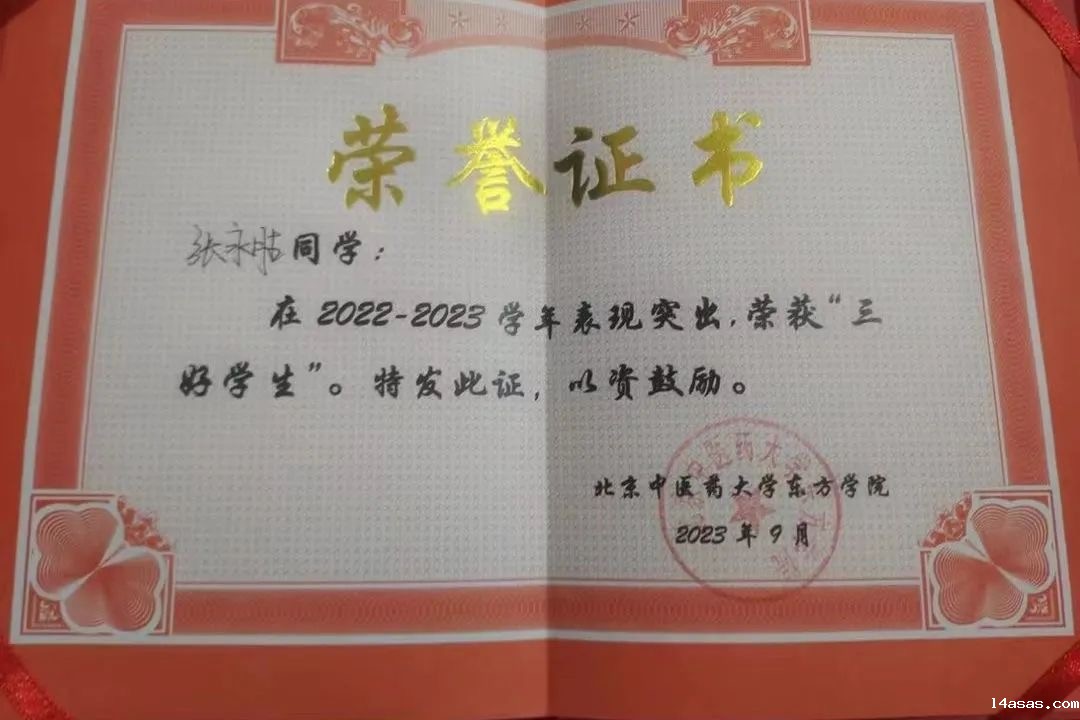 荣誉证书
张永胜同学：
在2022-2023学年表现突出，荣获“三
好学生”。特发此证，以资鼓励。
北京中医药大学东方学院
2023年9月
14asas.com